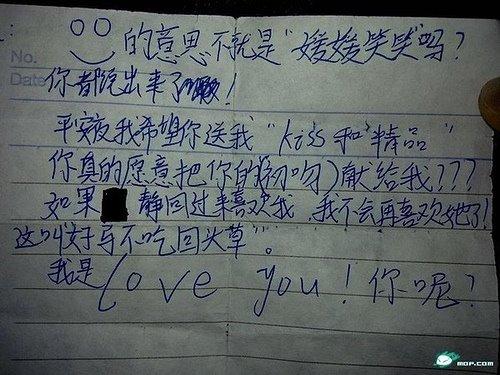 No.
Date
的意思不就是"媛媛笑笑"吗?
你都说出来了嘛!
平安夜我希望你送我"kiss和精品"
你真的愿意把你的(初吻)献给我???
如果 静回过来喜欢我,我不会再喜欢她了!
这叫好马不吃回头草"。
我是love you!你呢?
MOP.COM